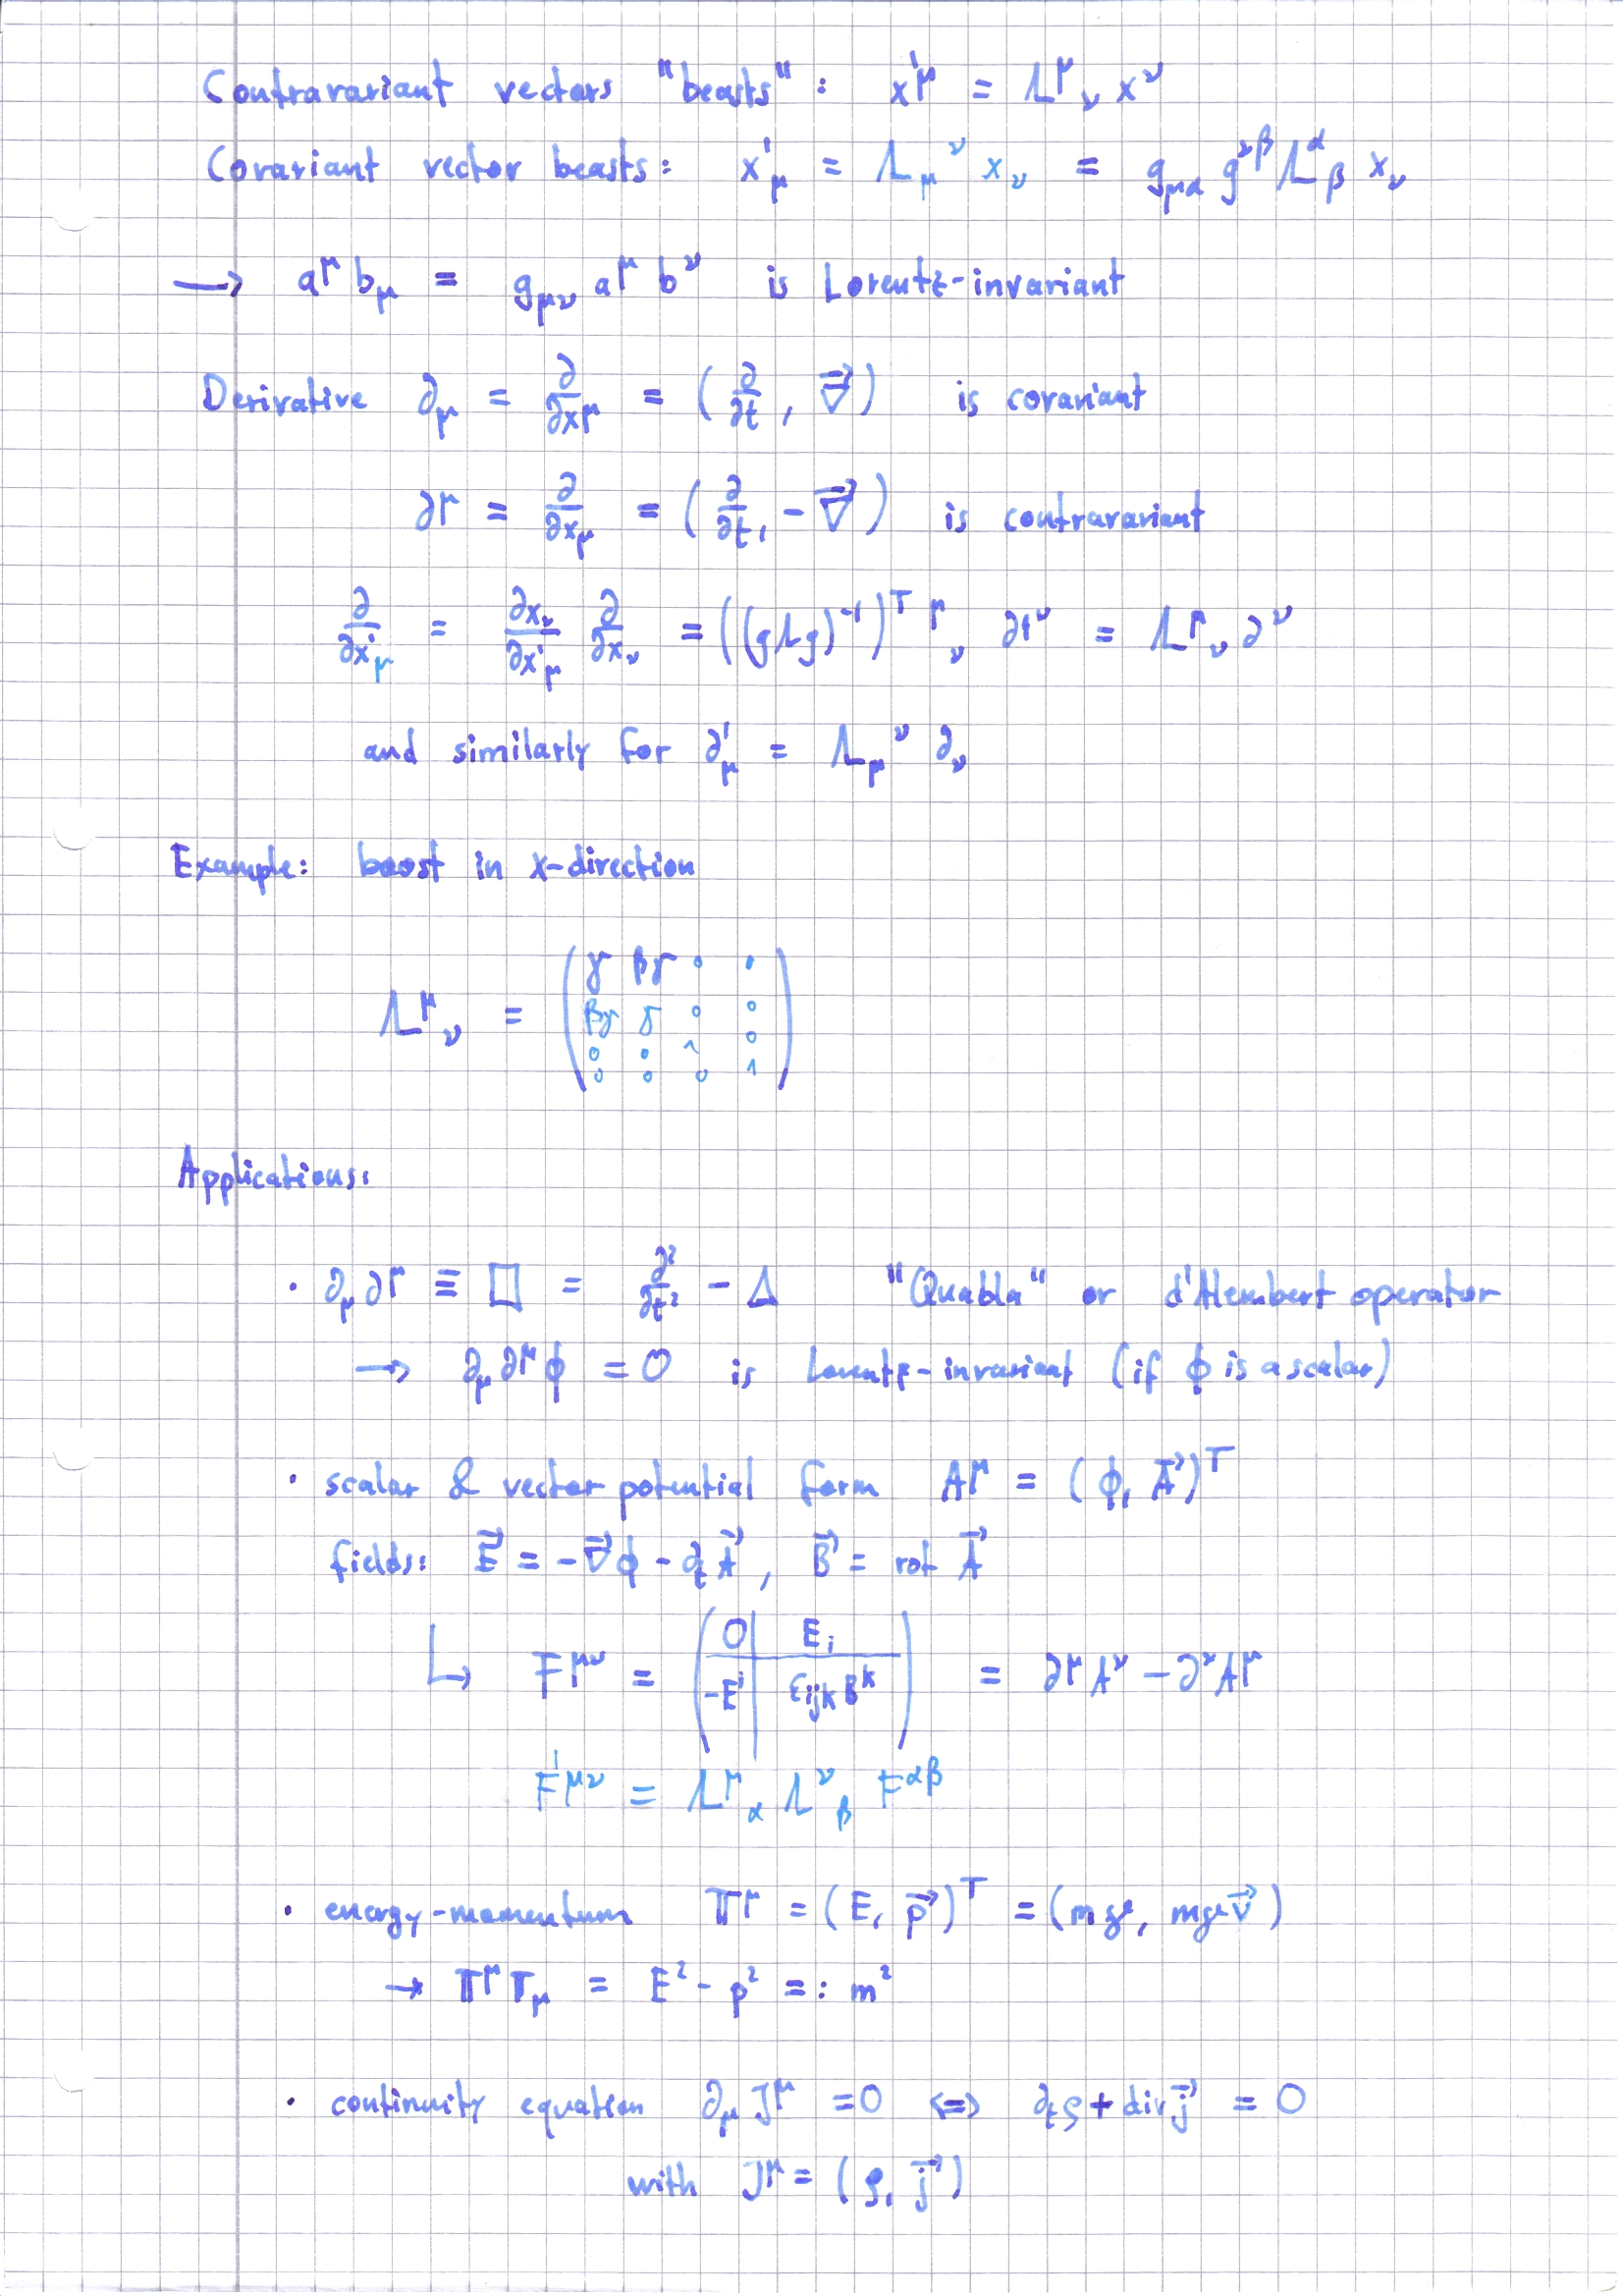 Contravariant vectors "beasts": x'^μ = Λ^μ_ν x^ν
Covariant vector beasts: x'_μ = Λ_μ^ν x_ν = g_μα g^νβ Λ^α_β x_ν
→ a^μ b_μ = g_μν a^μ b^ν is Lorentz-invariant
Derivative ∂_μ = ∂/∂x^μ = (∂/∂t, ∇⃗) is covariant
∂^μ = ∂/∂x_μ = (∂/∂t, -∇⃗) is contravariant
∂/∂x'_μ = ∂x_ν/∂x'_μ ∂/∂x_ν = ((gΛg)^-1)^T ^μ_ν ∂^ν = Λ^μ_ν ∂^ν
and similarly for ∂'_μ = Λ_μ^ν ∂_ν
Example: boost in x-direction
Λ^μ_ν = (γ βγ 0 0
βγ γ 0 0
0 0 1 0
0 0 0 1)
Applications:
· ∂_μ ∂^μ ≡ □ = ∂²/∂t² - Δ "Quabla" or d'Alembert operator
→ ∂_μ ∂^μ ϕ = 0 is Lorentz-invariant (if ϕ is a scalar)
· scalar & vector potential form A^μ = (ϕ, A⃗)^T
fields: E⃗ = -∇⃗ϕ - ∂_t A⃗, B⃗ = rot A⃗
↳ F^μν = (0 | E_i
-E^i | ε_ijk B^k) = ∂^μ A^ν - ∂^ν A^μ
F'^μν = Λ^μ_α Λ^ν_β F^αβ
· energy-momentum P^μ = (E, p⃗)^T = (mγ, mγv⃗)
→ P^μ P_μ = E² - p² =: m²
· continuity equation ∂_μ J^μ = 0 ⇔ ∂_t ρ + div j⃗ = 0
with J^μ = (ρ, j⃗)